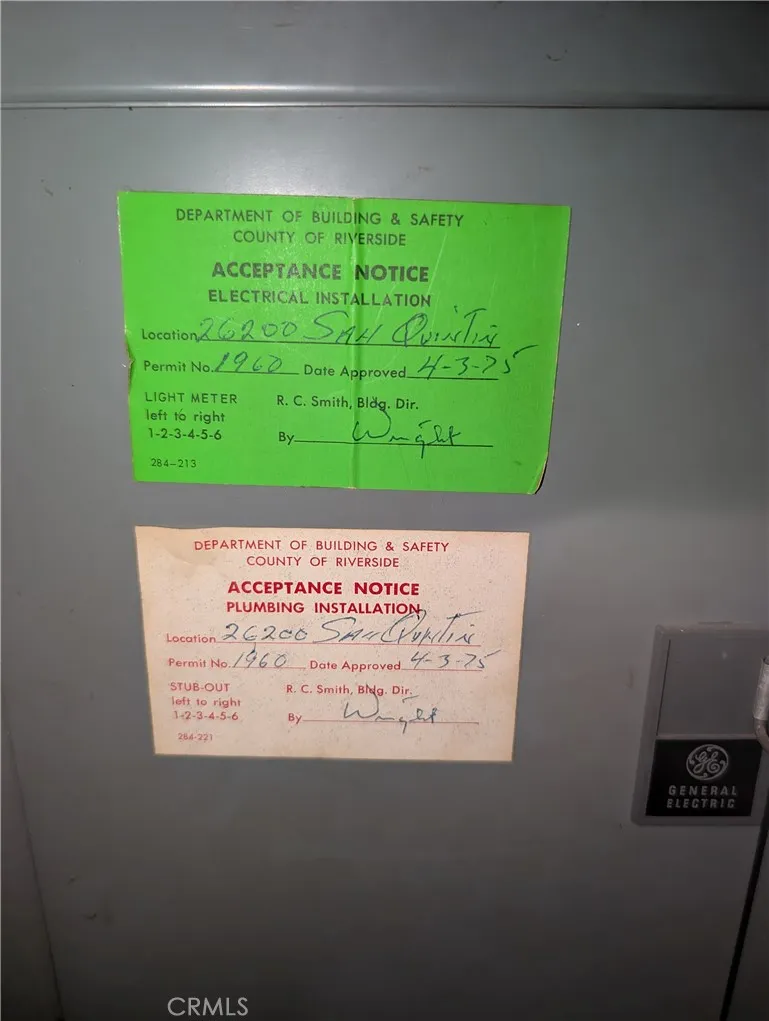 DEPARTMENT OF BUILDING & SAFETY
COUNTY OF RIVERSIDE
ACCEPTANCE NOTICE
ELECTRICAL INSTALLATION
Location 26200 SAN QUINTIN
Permit No. 1960 Date Approved 4-3-75
LIGHT METER
left to right
1-2-3-4-5-6
R. C. Smith, Bldg. Dir.
By Wright
284-213
DEPARTMENT OF BUILDING & SAFETY
COUNTY OF RIVERSIDE
ACCEPTANCE NOTICE
PLUMBING INSTALLATION
Location 26200 SAN QUINTIN
Permit No. 1960 Date Approved 4-3-75
STUB-OUT
left to right
1-2-3-4-5-6
R. C. Smith, Bldg. Dir.
By Wright
284-221
GE
GENERAL
ELECTRIC
CRMLS